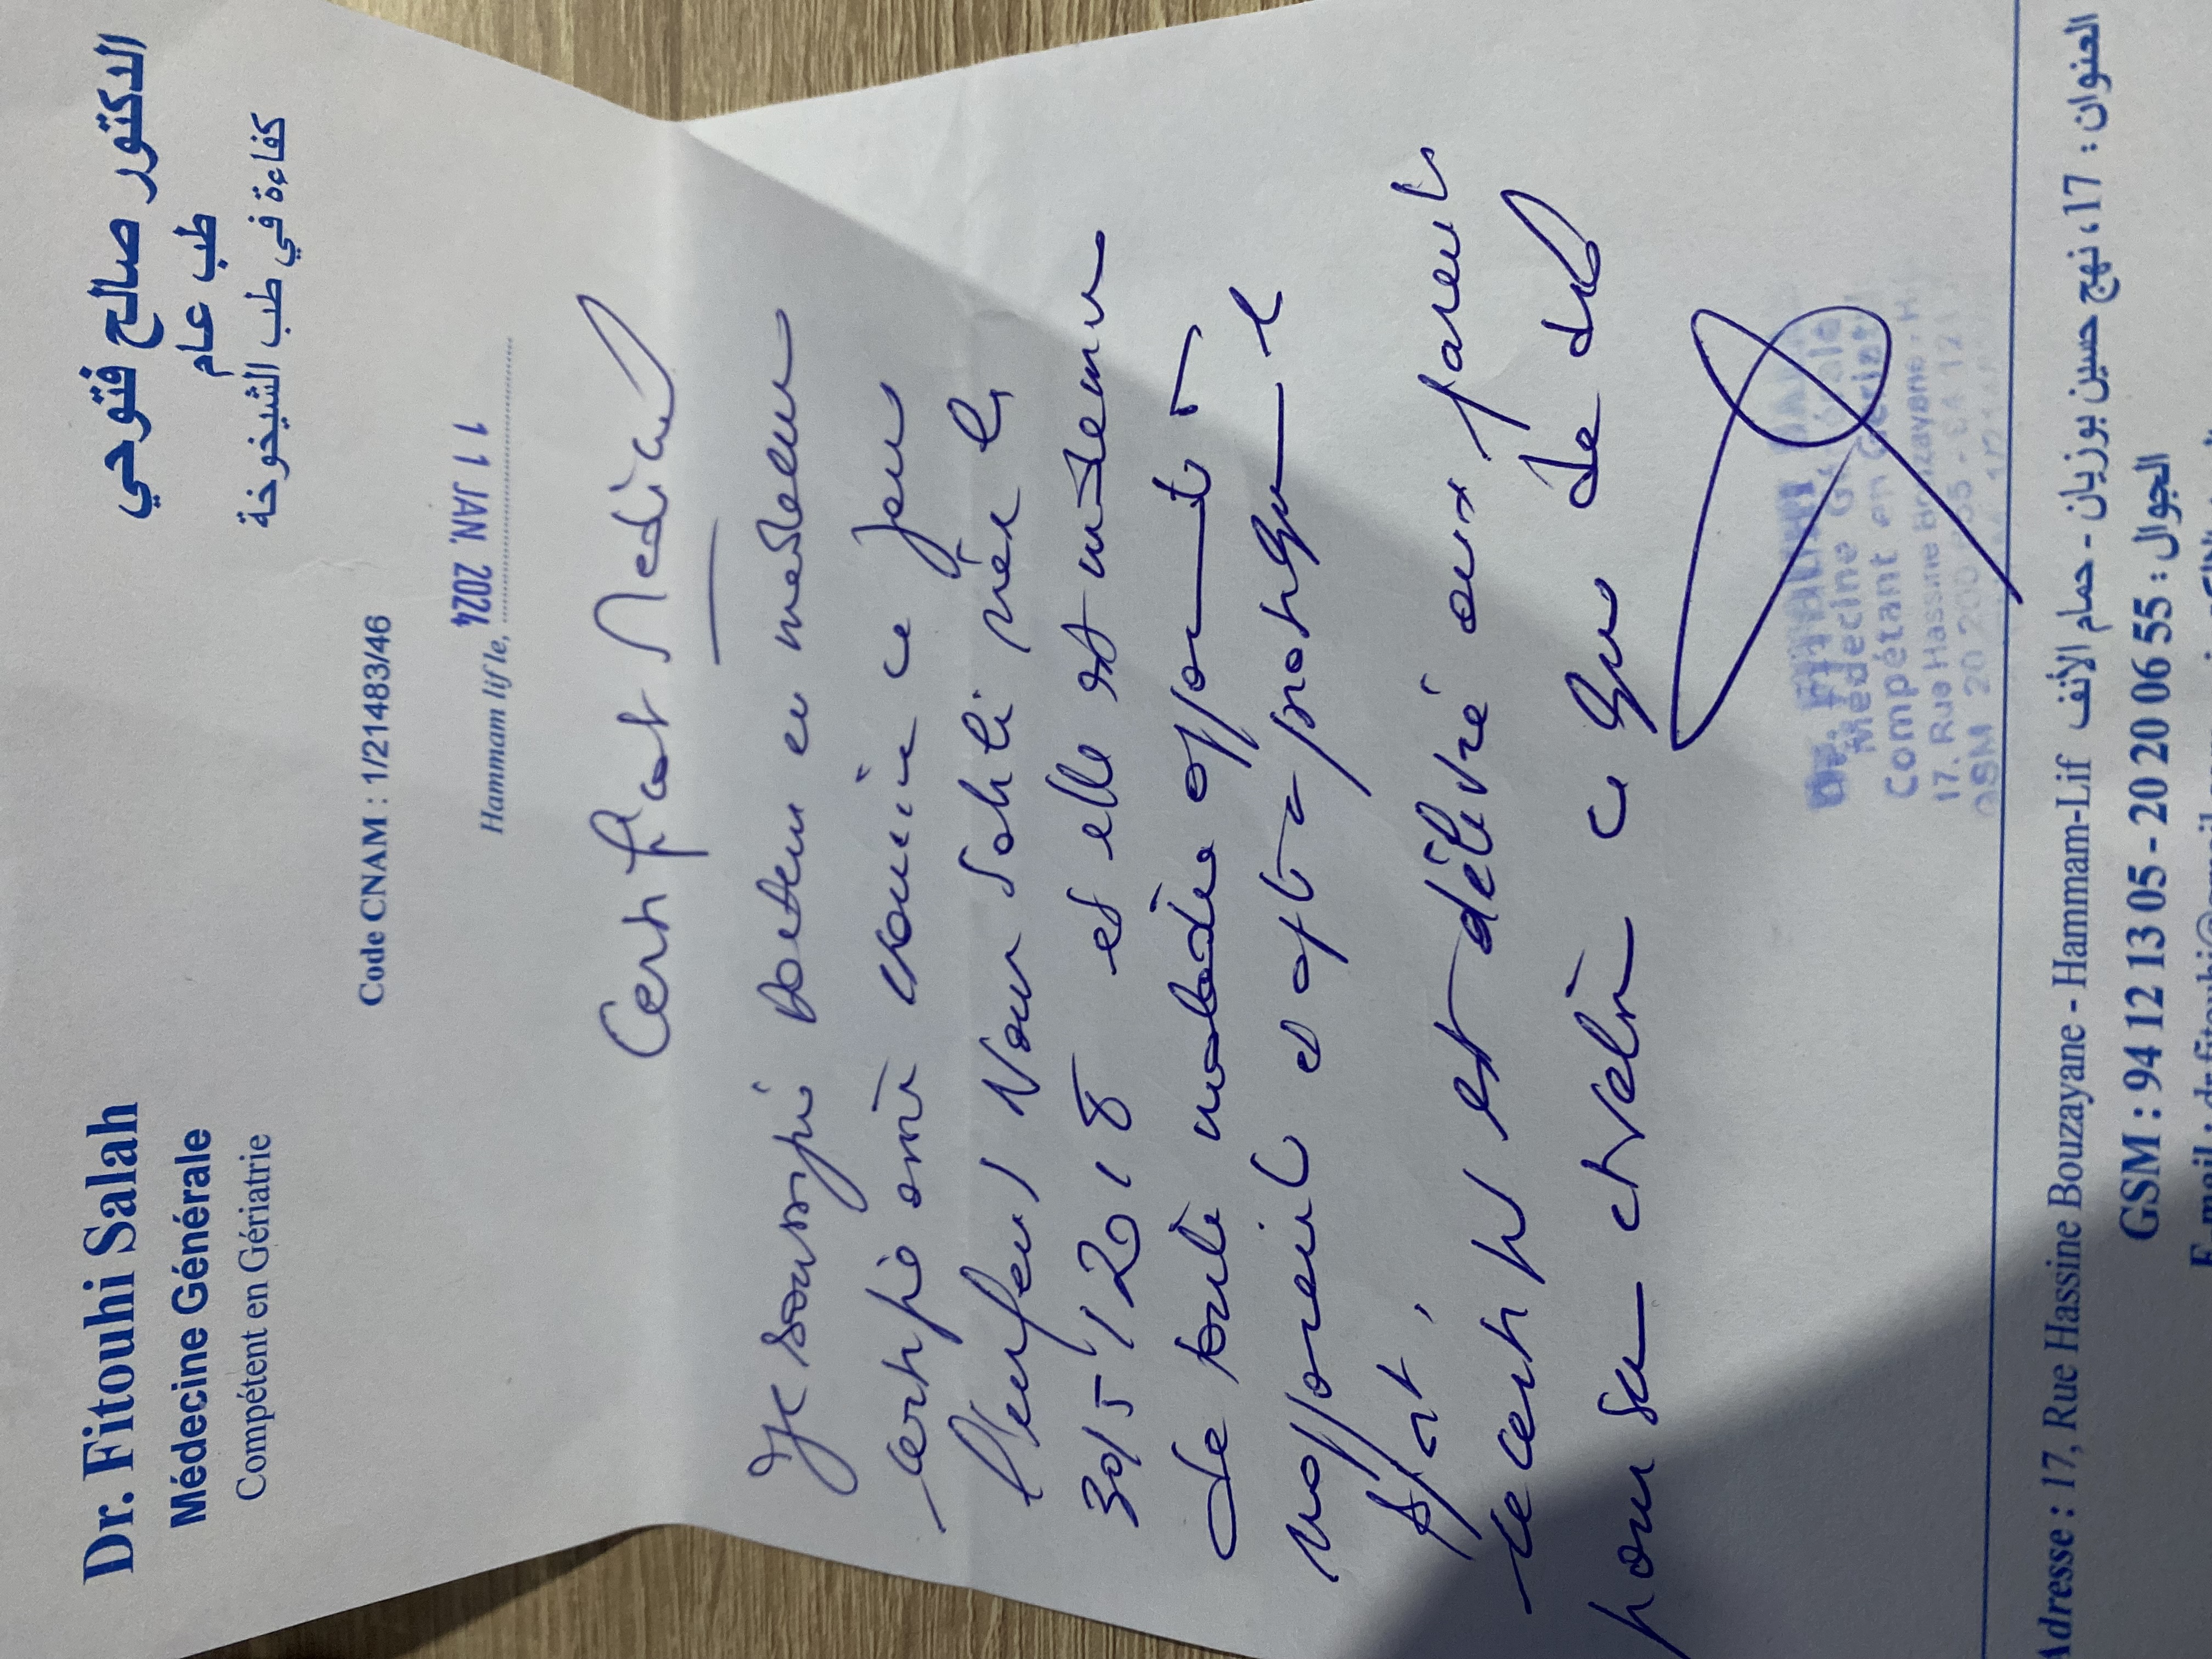 Dr. Fitouhi Salah
Médecine Générale
Compétent en Gériatrie
الدكتور صالح فتوحي
طب عام
كفاءة في طب الشيخوخة
Code CNAM : 1/21483/46
Hammam lif le, 11 JAN. 2024
Certificat Medical
Je soussigné Docteur en medecine
certifie avoir examiné ce jour
l'enfant Nour Sahli née le
30/5/2018 et elle est indemne
de toute maladie opposant à
et apte a pratiquer le
sport.
Le certif est délivré aux parents
pour servir et valoir ce que de droit
Médecine Générale
Compétant en Gériatrie
17, Rue Hassine Bouzayane - H
GSM 20 200 655 - 94 121
Adresse : 17, Rue Hassine Bouzayane - Hammam-Lif العنوان : 17، نهج حسين بوزريان - حمام الأنف
GSM : 94 12 13 05 - 20 20 06 55 : الجوال